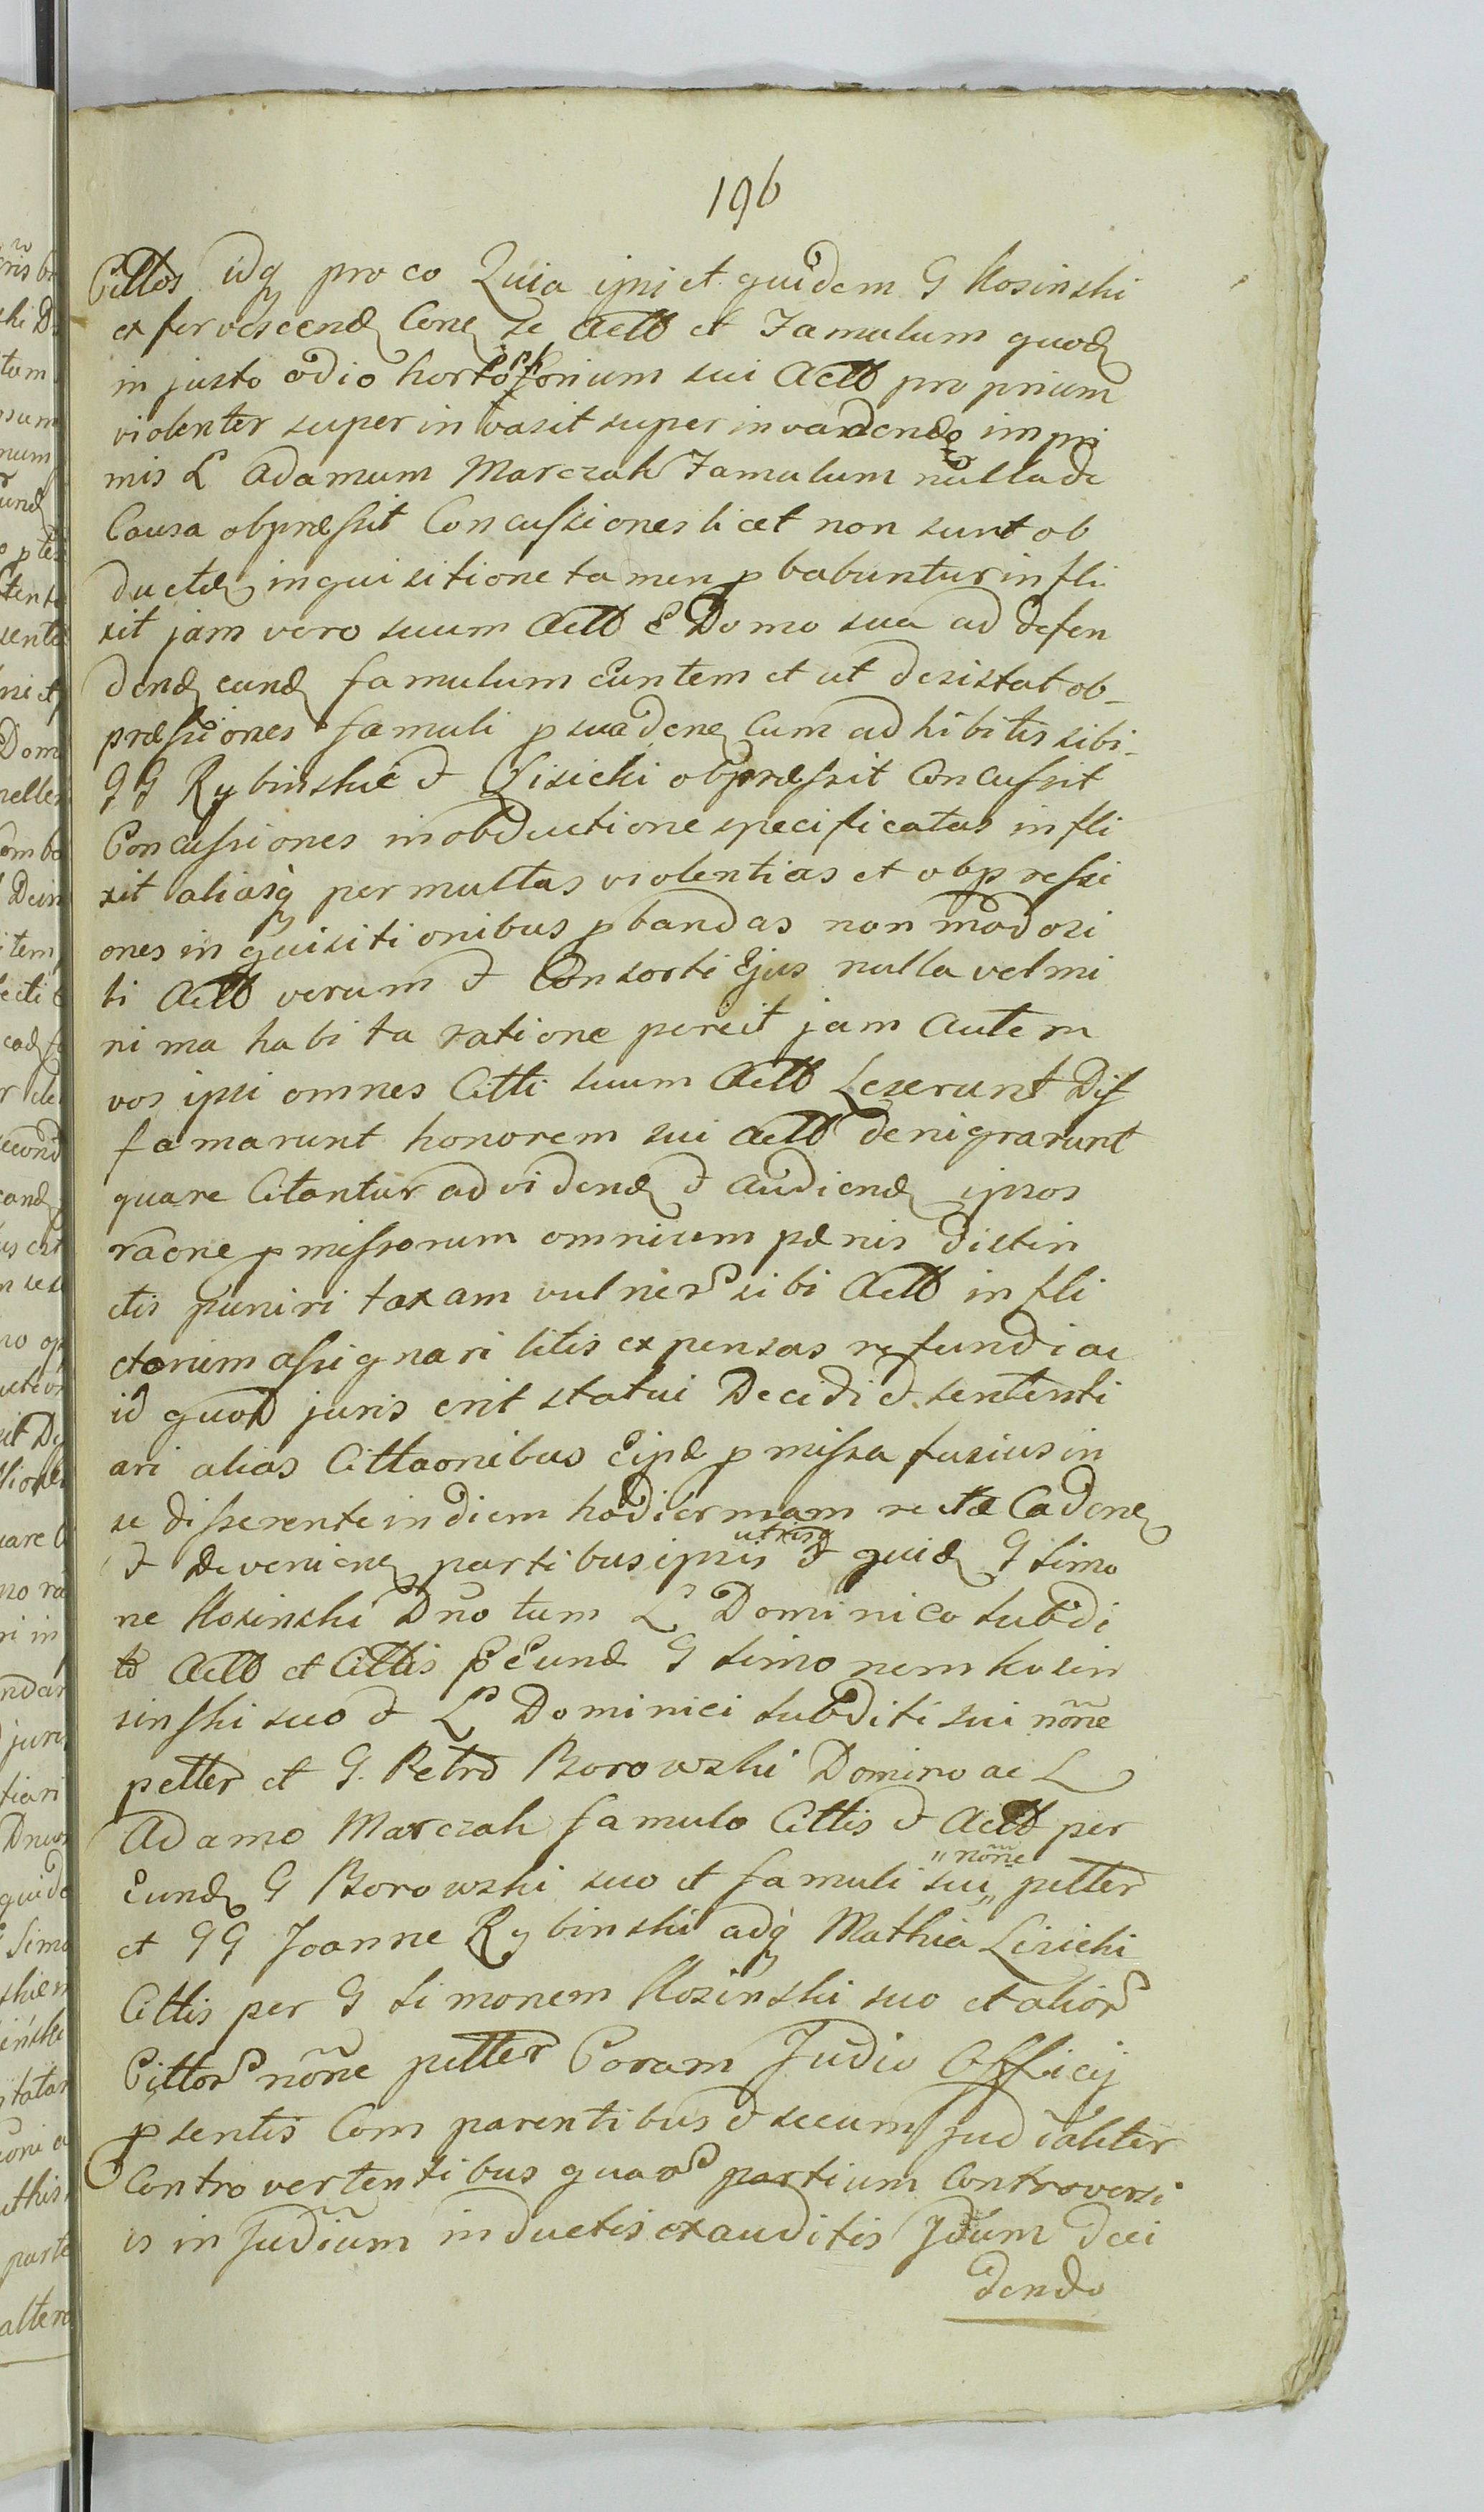 196
Cittos idq pro eo Quia ipsi et quidem G Kosinski
exfervescend Conq se Actt et Famulum quod
injusto odio hortophorium sui Actt proprium
violenter superinvasit superinvadendo impri
mis L Adamum Marczak Famulum nulla de
Causa obpræssit Concussiones licet non sunt ob
ductæ inquisitione tamen pbabuntur infli
xit jam vero suum Actt E Domo sua ad defen
dend eund famulum Euntem et ut desistat ob-
præssiones famuli psuadene Cum adhibitis sibi-
GG Rybinskie & Lisicki obpræssit Concussit
Concussiones in obductione specificatas infli
xit aliasq permultas violentias et obpressi
ones inquisitionibus pbandas non modo si
bi Actt verum & Consorti Ejus nulla vel mi
nima habita ratione pereit jam autem
vos ipsi omnes Citti suum Actt Leserunt Dif
famarunt honorem sui Actt denigrarunt
quare Citantur ad vidend & audiend ipsos
raone pmissorum omnium pænis distin
ctis puniri taxam vulner sibi Actt infli
ctorum assignari litis expensas refundi ac
id quod juris erit statui Decidi & sententi
ari alias Cittaonibus Eipæ pmissa fusius in
se disserente in diem hodiernam recte Cadene
& deveniene partibus ipsis utrisq & quid G Simo
ne Kosinski Dno tum L Dominico subdi
to Actt et Cittis p Eund G Simonem Kosin
sinski suo & L Dominici subditi sui nõne
petter et G. Petro Borowski Domino ac L
Adamo Marczak famulo Cittis & Actt per
Eund G Borowski suo et famuli sui „ nõne petter
et GG Joanne Rybinski adq Mathia Lisicki
Cittis per G Simonem Kosinski suo et alior
Cittor nõne petter Coram Judio Officij
psentis Comparentibus & secum Judialiter
Controvertentibus quar partium Controversi
is in Judium inductis exauditis Jdium deci
dendo